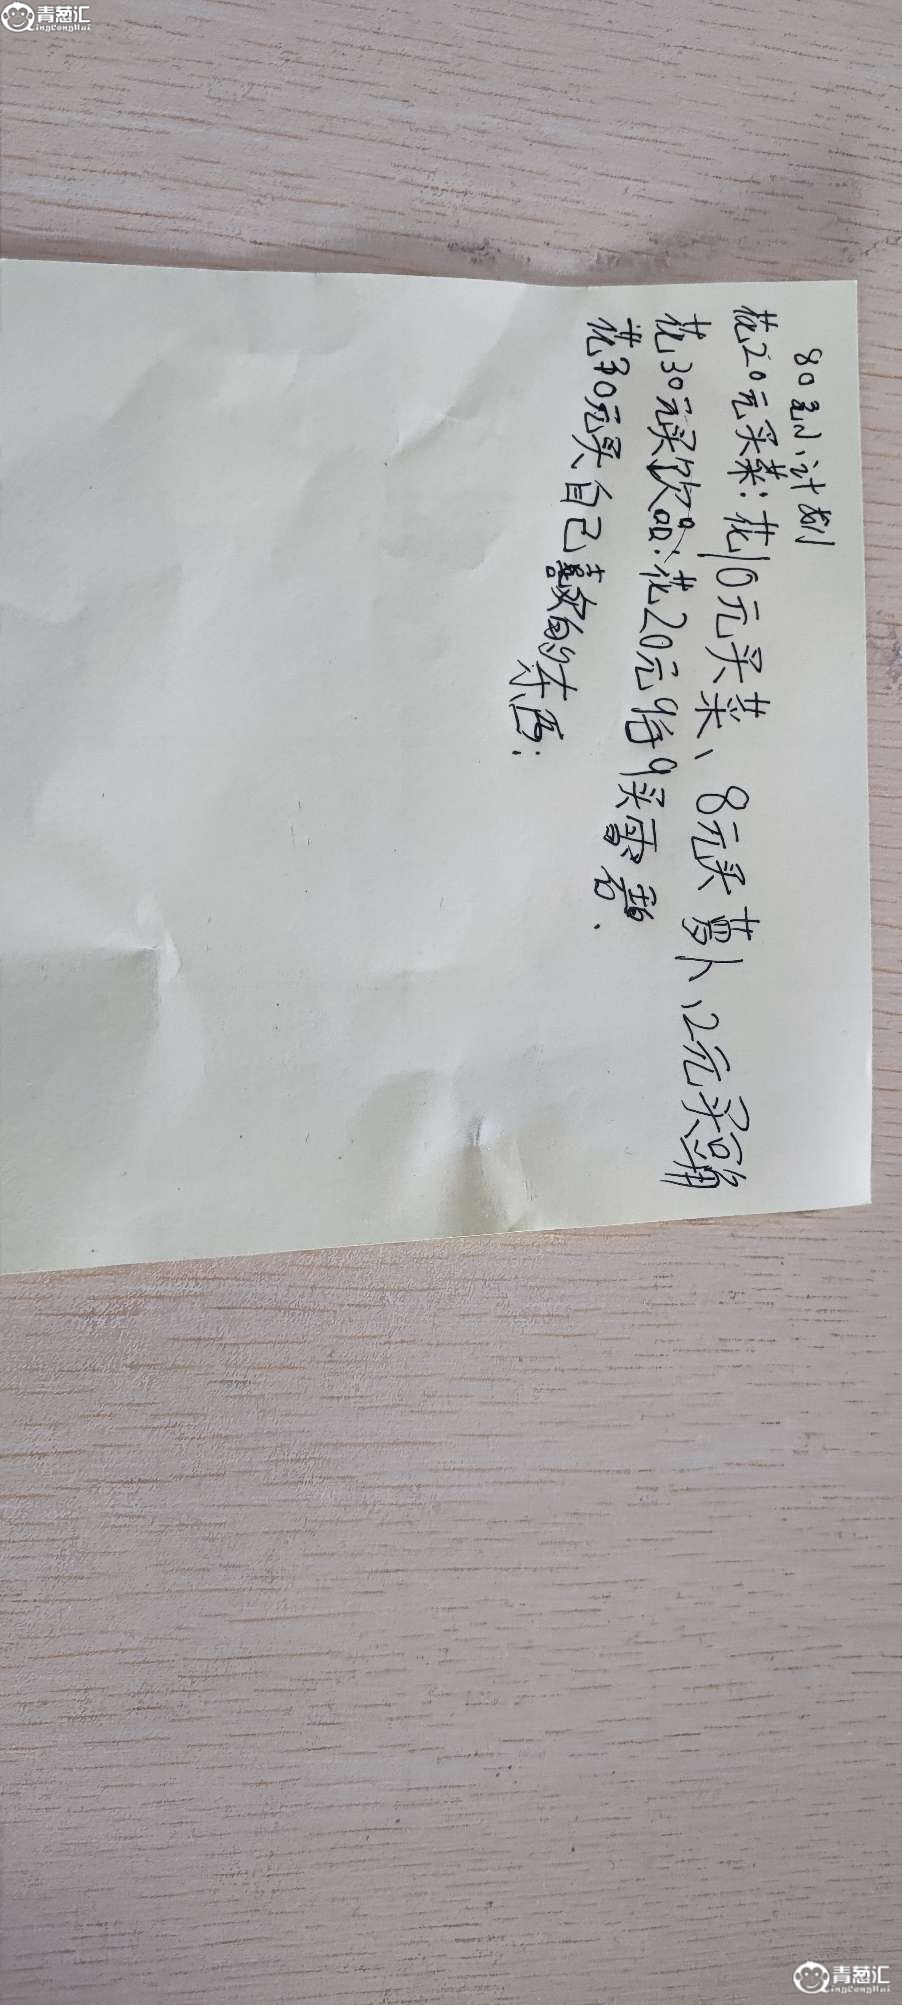 青葱汇
QingCongHui
80元小计划
花20元买菜：花10元买菜、8元买萝卜、2元买
花30元买饮品：花20元 买雪碧.
花30元买自己喜欢的东西：
青葱汇
QingCongHui